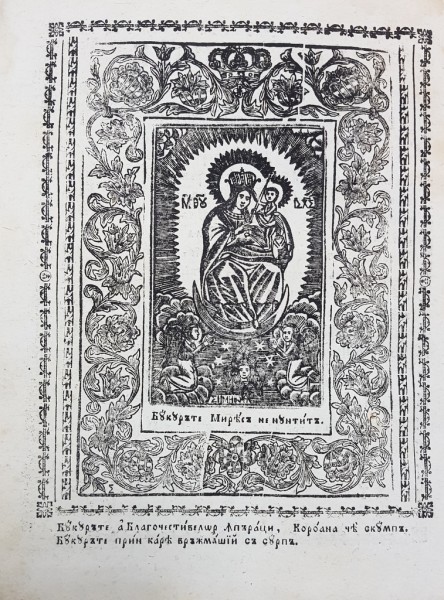 М҃Р ѲУ
Бꙋкꙋрѣте Мирѣсъ не нꙋнтитъ.
Бꙋкꙋрѣте а̀ Благочести́велѡр ꙟпъра́ци, Корѡана чѣ скꙋмпъ.
Бꙋкꙋрѣте при́н ка́ре връжма́шїй съ сꙋрпъ.